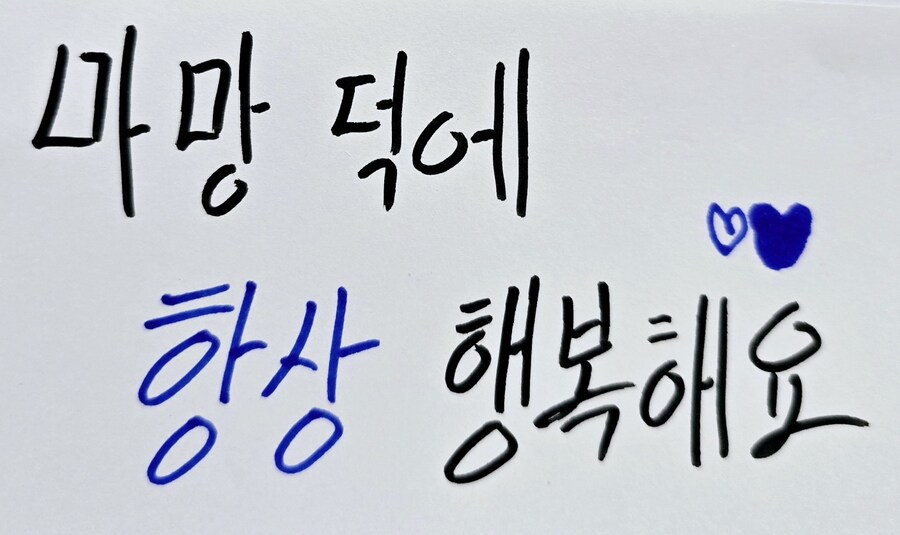 마망 덕에
항상 행복해요